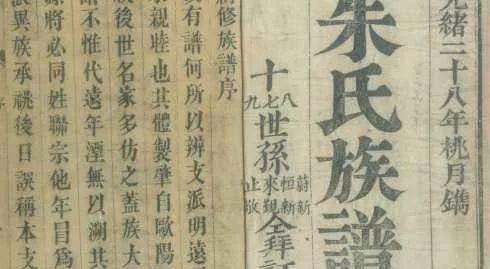 光緒二十八年桃月鐫
朱氏族譜
十八七九世孫蔚新恒新來覲止敬仝拜訂
修族譜序
有譜何所以辨支派明遠
親睦也其體製肇自歐陽
後世名家多仿之蓋族大
不惟代遠年湮無以溯其
將必同姓聯宗他年冒為
異族承祧後日誤稱本支